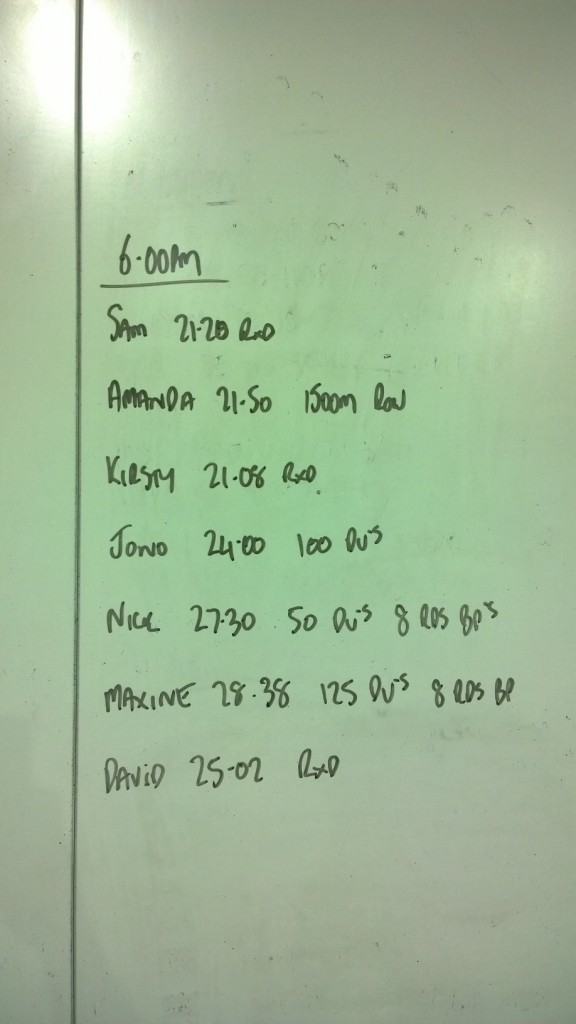 6.00AM
SAM 21.20 RxD
AMANDA 21.50 1500m ROW
KIRSTY 21.08 RxD
JONO 24.00 100 DU'S
NICK 27.30 50 DU'S 8 RDS BP'S
MAXINE 28.38 125 DU'S 8 RDS BP
DAVID 25.02 RxD